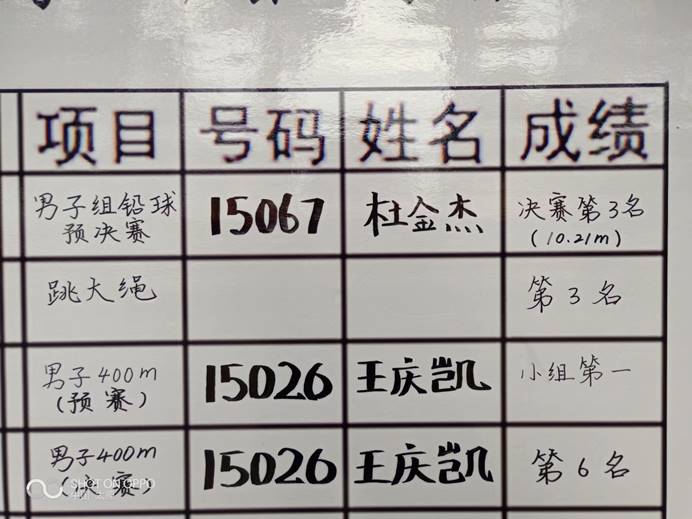 项目 号码 姓名 成绩
男子组铅球 15067 杜金杰 决赛第3名
预决赛 (10.21m)
跳大绳 第3名
男子400m 15026 王庆凯 小组第一
(预赛)
男子400m 15026 王庆凯 第6名
(决赛)
SHOT ON OPPO